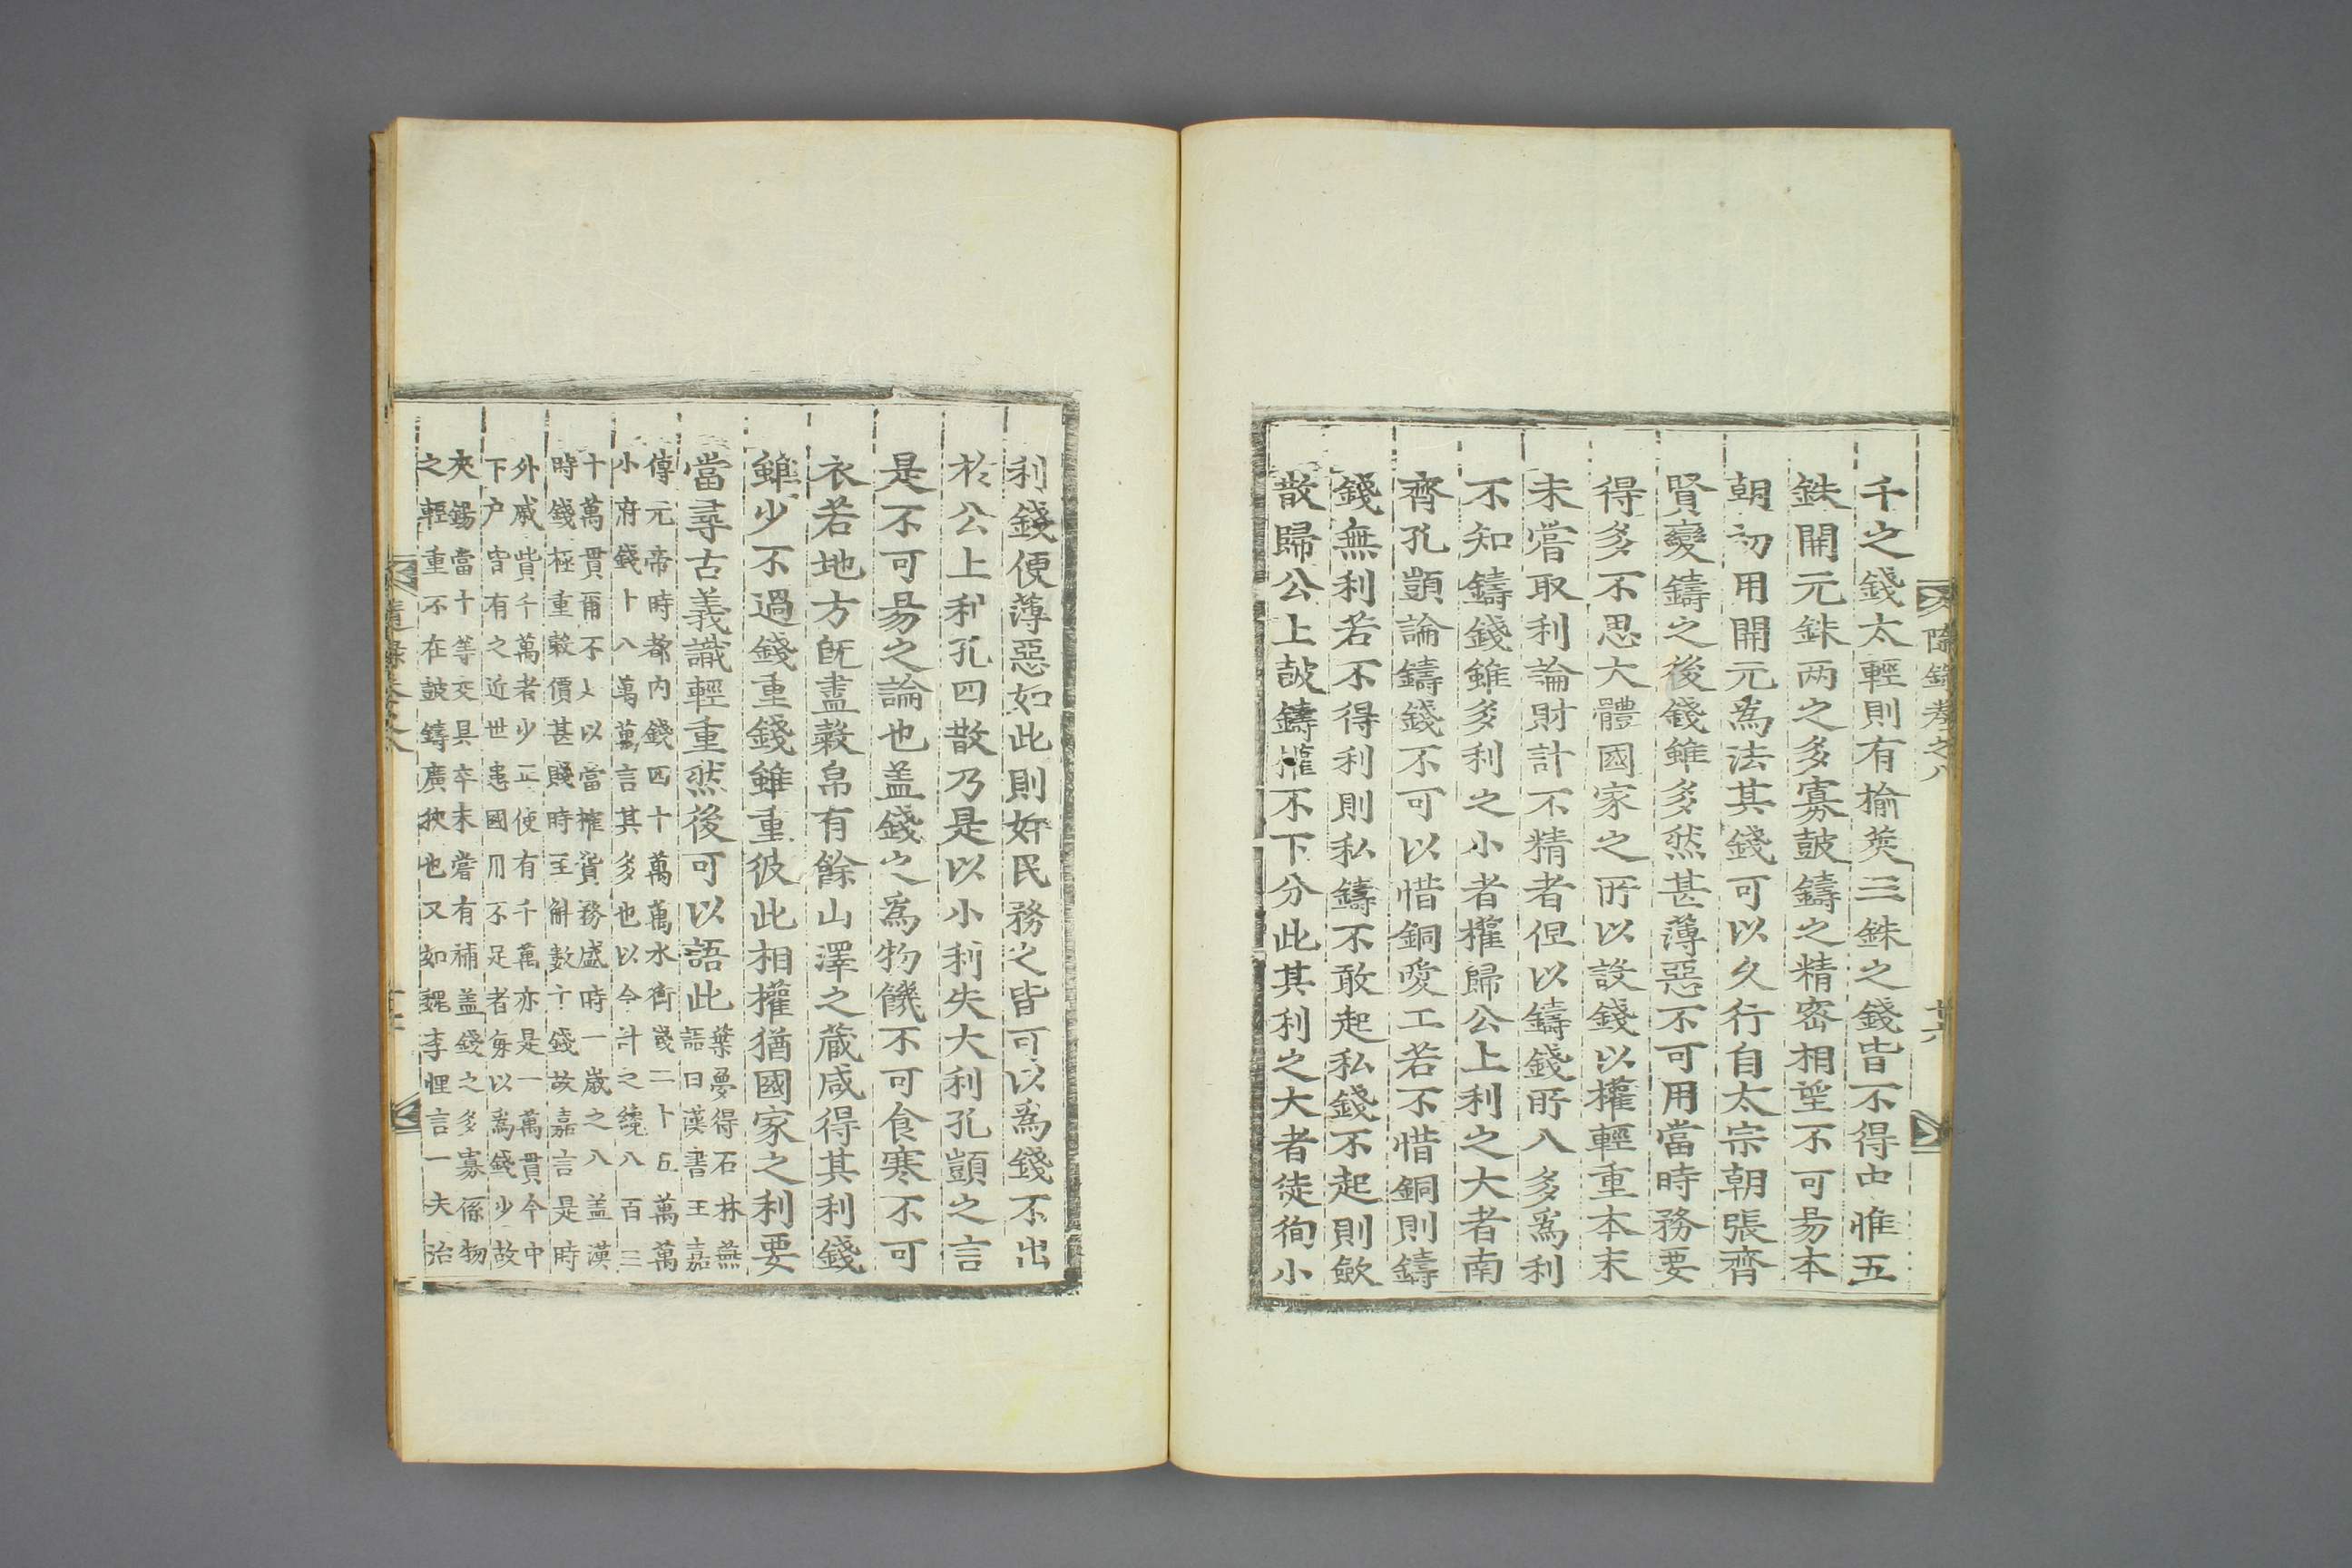 隨錄卷之八
廿六
千之錢太輕則有揄莢三銖之錢皆不得中惟五
銖開元銖两之多寡鼓鑄之精密相望不可昜本
朝初用開元爲法其錢可以久行自太宗朝張齊
賢變鑄之後錢雖多然甚薄惡不可用當時務要
得多不思大體國家之所以設錢以權輕重本末
未嘗取利論財計不精者但以鑄錢所入多爲利
不知鑄錢雖多利之小者權歸公上利之大者南
齊孔顗論鑄錢不可以惜銅愛工若不惜銅則鑄
錢無利若不得利則私鑄不敢起私錢不起則歛
散歸公上鼓鑄權不下分此其利之大者徒徇小
利錢便薄惡如此則奸民務之皆可以爲錢不出
於公上利孔四散乃是以小利失大利孔顗之言
是不可昜之論也盖錢之爲物饑不可食寒不可
衣若地方旣盡穀帛有餘山澤之藏咸得其利錢
雖少不過錢重錢雖重彼此相權猶國家之利要
當尋古義識輕重然後可以語此
葉夢得石林燕
語曰漢書王嘉
傳元帝時都内錢四十萬萬水衡錢二十五萬萬
小府錢十八萬萬言其多也以今計之纔八百三
十萬貫爾不以當榷貨務盛時一歲之入盖漢
時錢極重穀價甚賤時至斛數十錢故嘉言是時
外戚貲千萬者少正使有千萬亦是一萬貫今中
下户皆有之近世患國用不足者每以爲錢少故
夾錫當十等交具卒未嘗有補盖錢之多寡係物
之輕重不在鼓鑄廣狹也又如魏李悝言一夫治